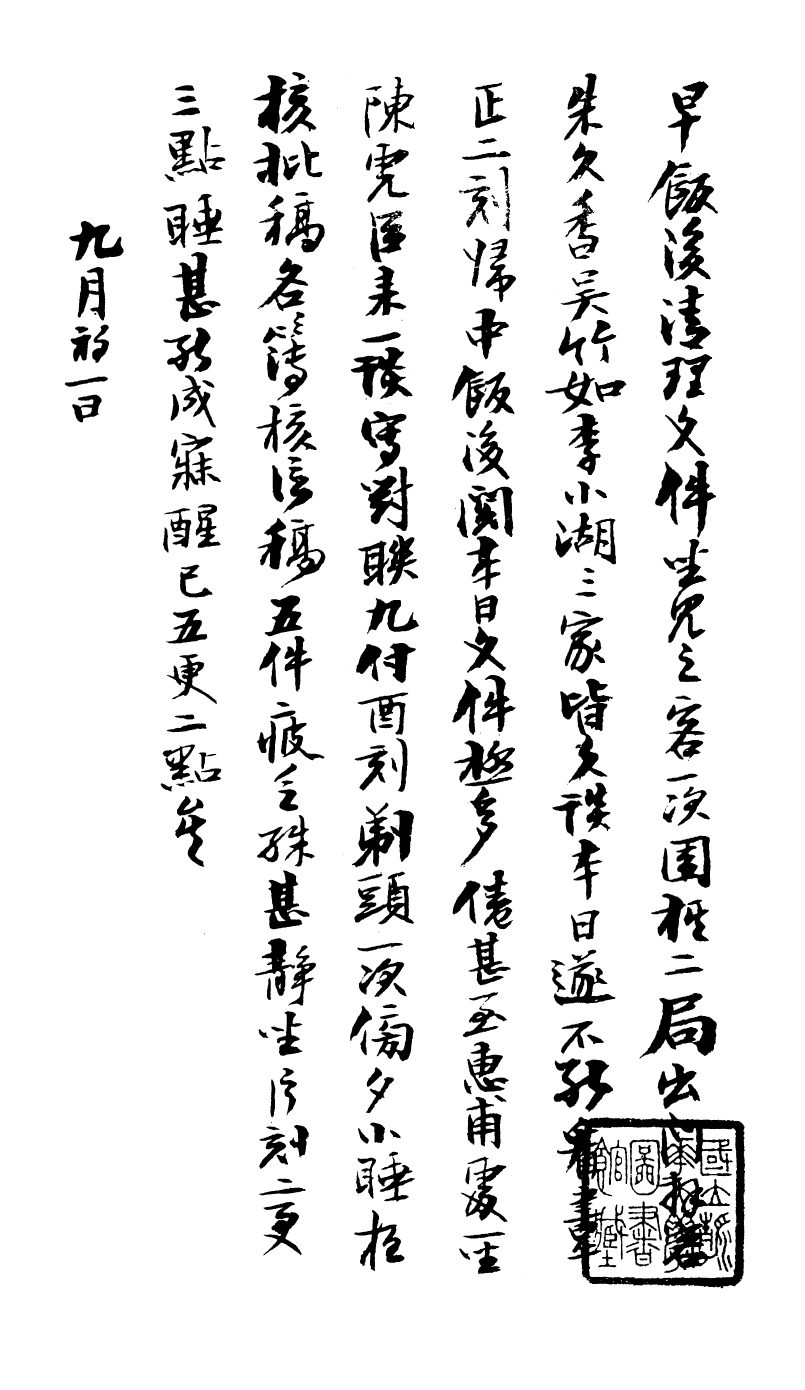 早飯後清理文件坐見之客一次圍棋二局出門拜
朱久香吳竹如李小湖三家皆久談本日遂不能看書
正二刻歸中飯後閱本日文件極多倦甚至惠甫處一坐
陳虎臣來一談寫對聯九付酉刻剃頭一次傍夕小睡夜
核批稿各簿核信稿五件疲乏殊甚靜坐片刻二更
三點睡甚能成寐醒已五更二點矣
九月初一日
國立
圖書
館藏